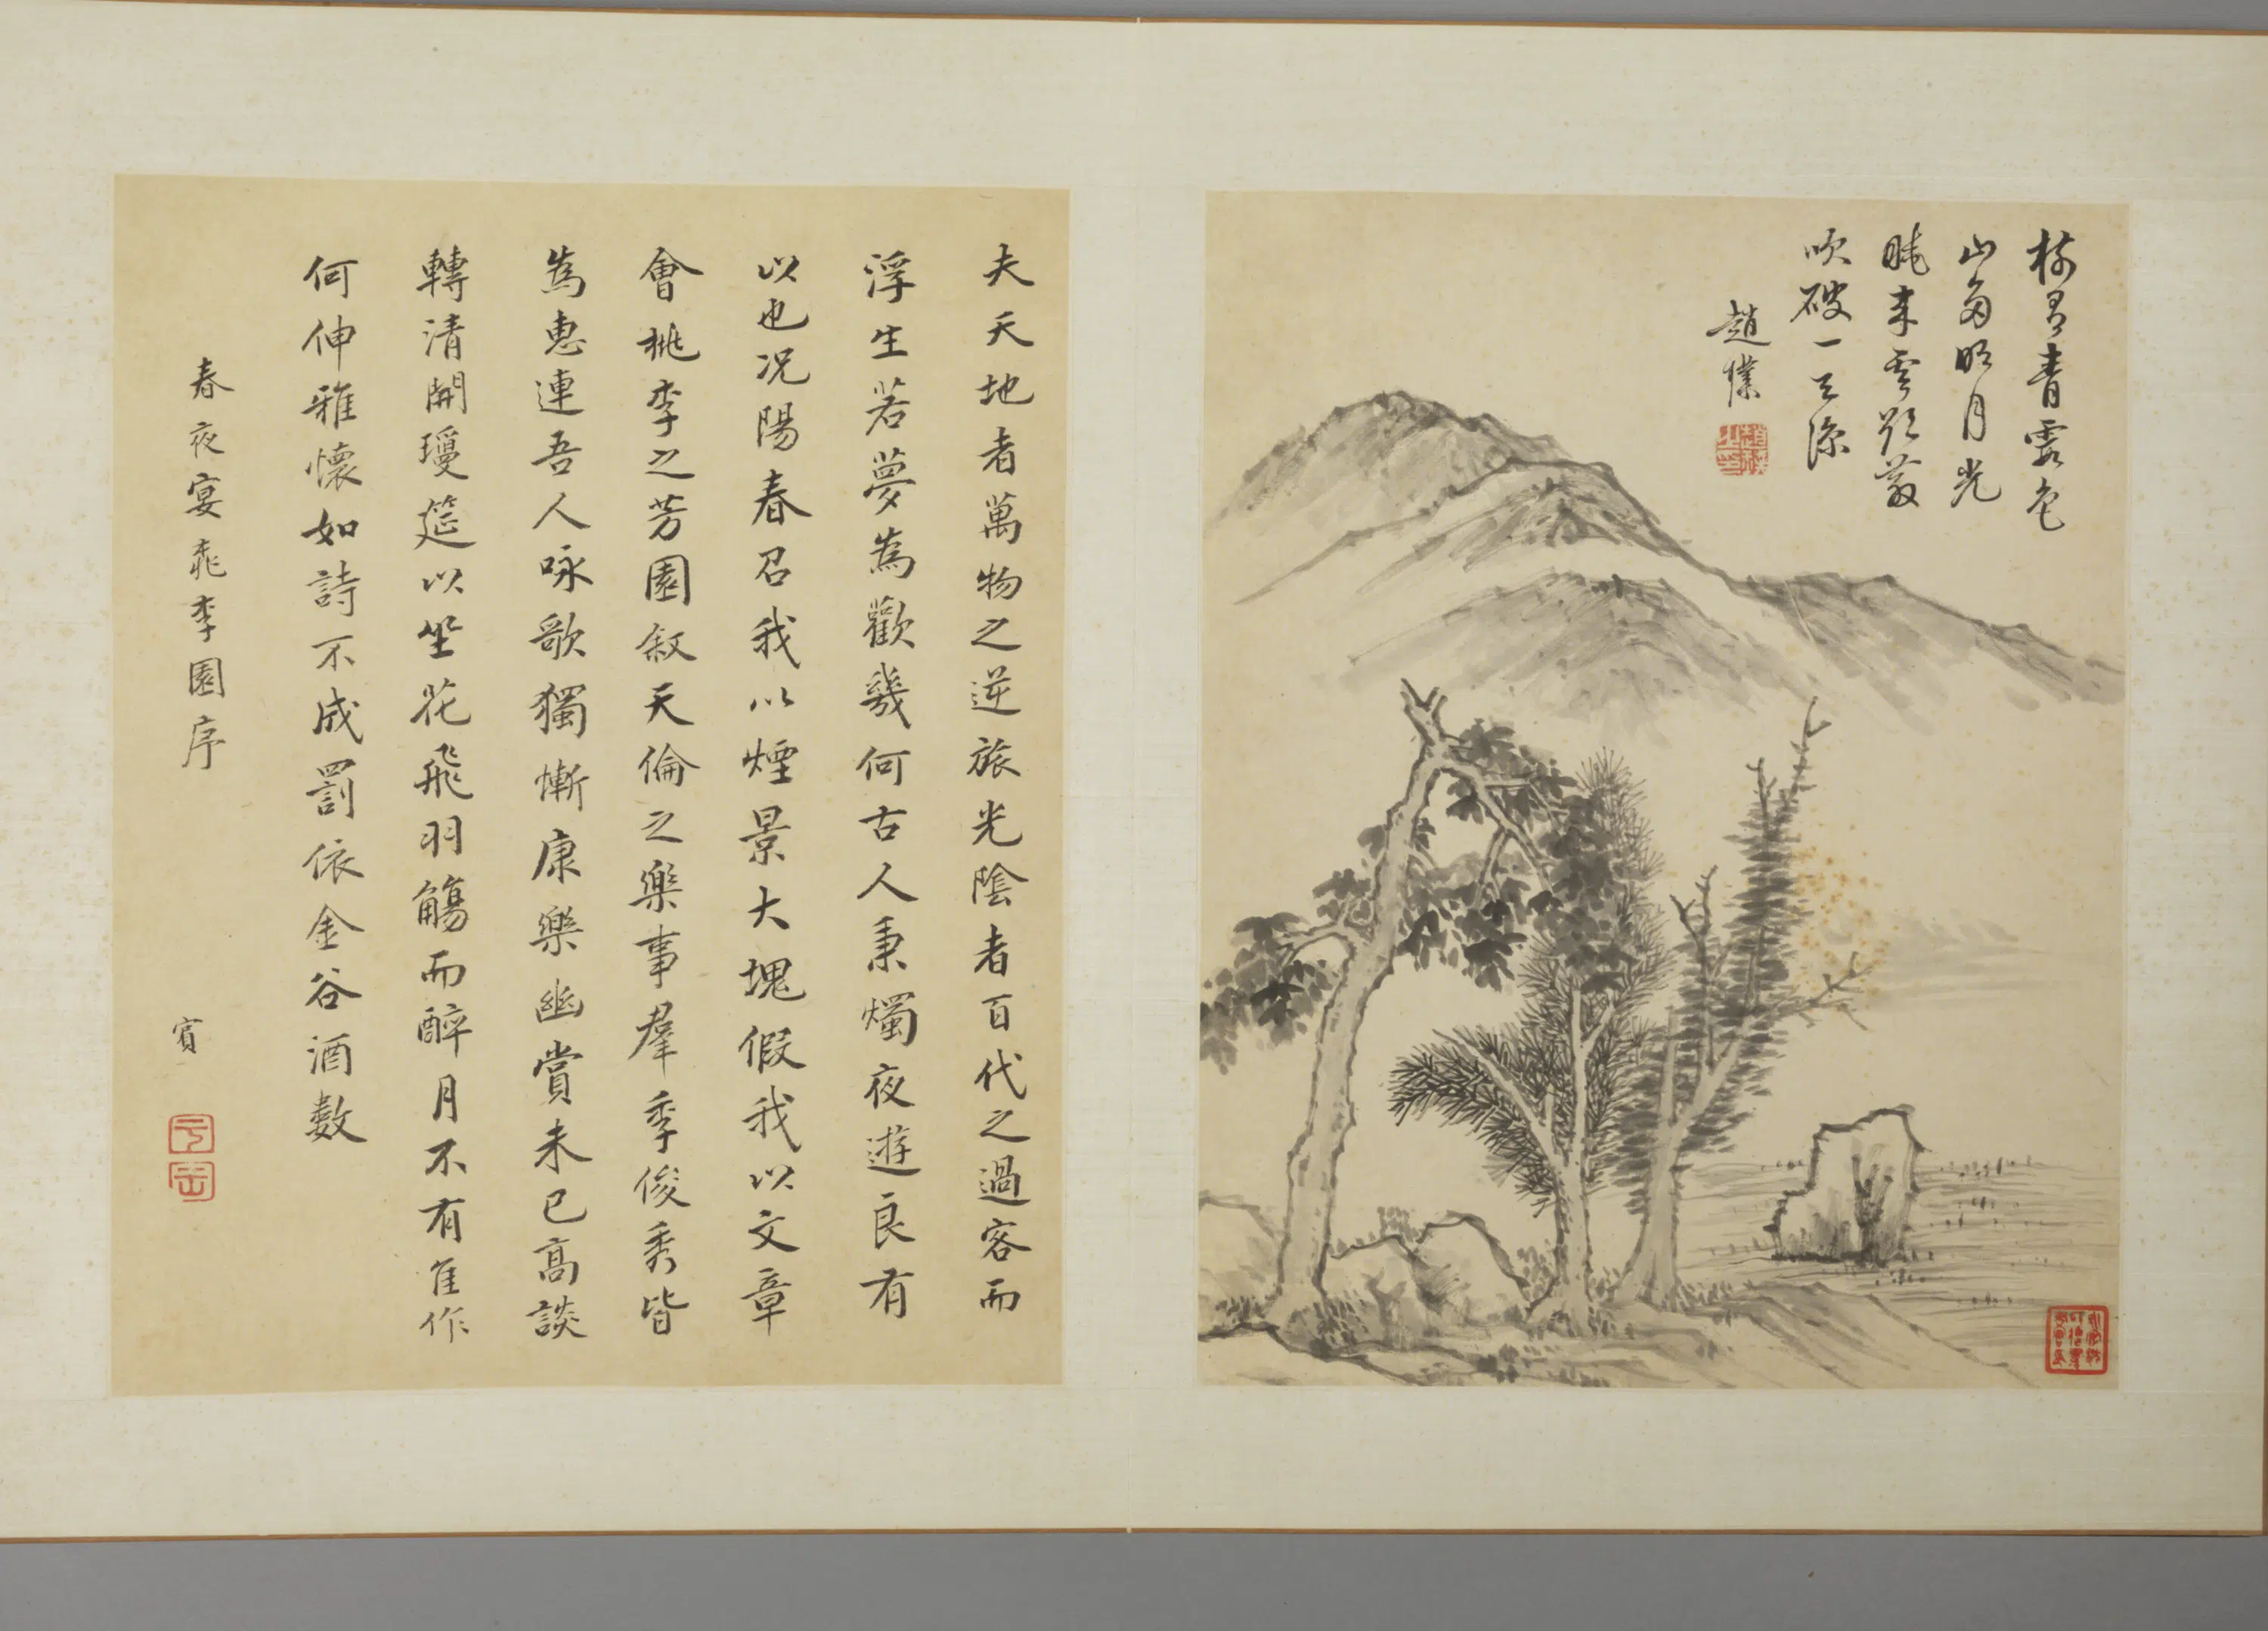 青 色
山多明月光
來雲 散
吹破一
趙
夫天地者萬物之逆旅光陰者百代之過客而
浮生若夢為歡幾何古人秉燭夜遊良有
以也况陽春召我以煙景大塊假我以文章
會桃李之芳園叙天倫之樂事羣季俊秀皆
為惠連吾人咏歌獨慚康樂幽賞未已高談
轉清開瓊筵以坐花飛羽觴而醉月不有佳作
何伸雅懷如詩不成罰依金谷酒數
春夜宴桃李園序
賓